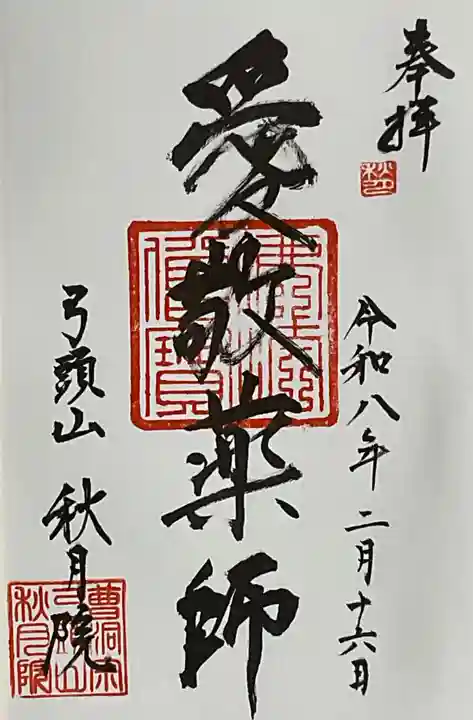 奉拝
令和八年二月十六日
愛敬薬師
弓頭山 秋月院
曹洞宗
弓頭山
秋月院